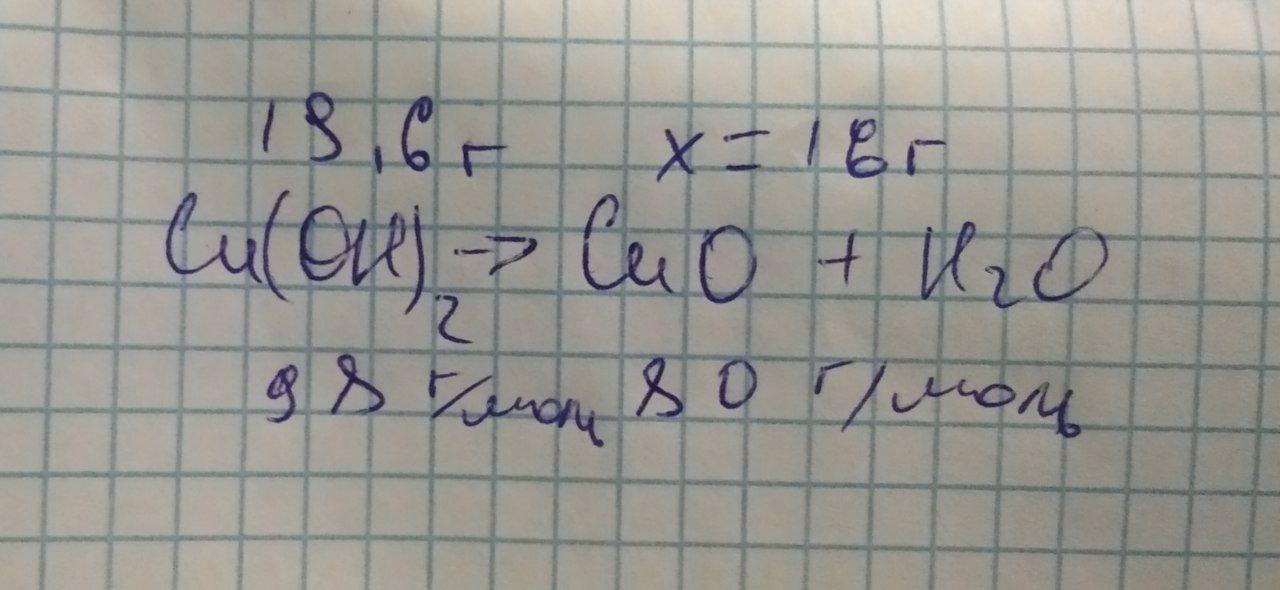 19,6 г x = 16 г
Cu(OH)₂ -> CuO + H₂O
98 г/моль 80 г/моль